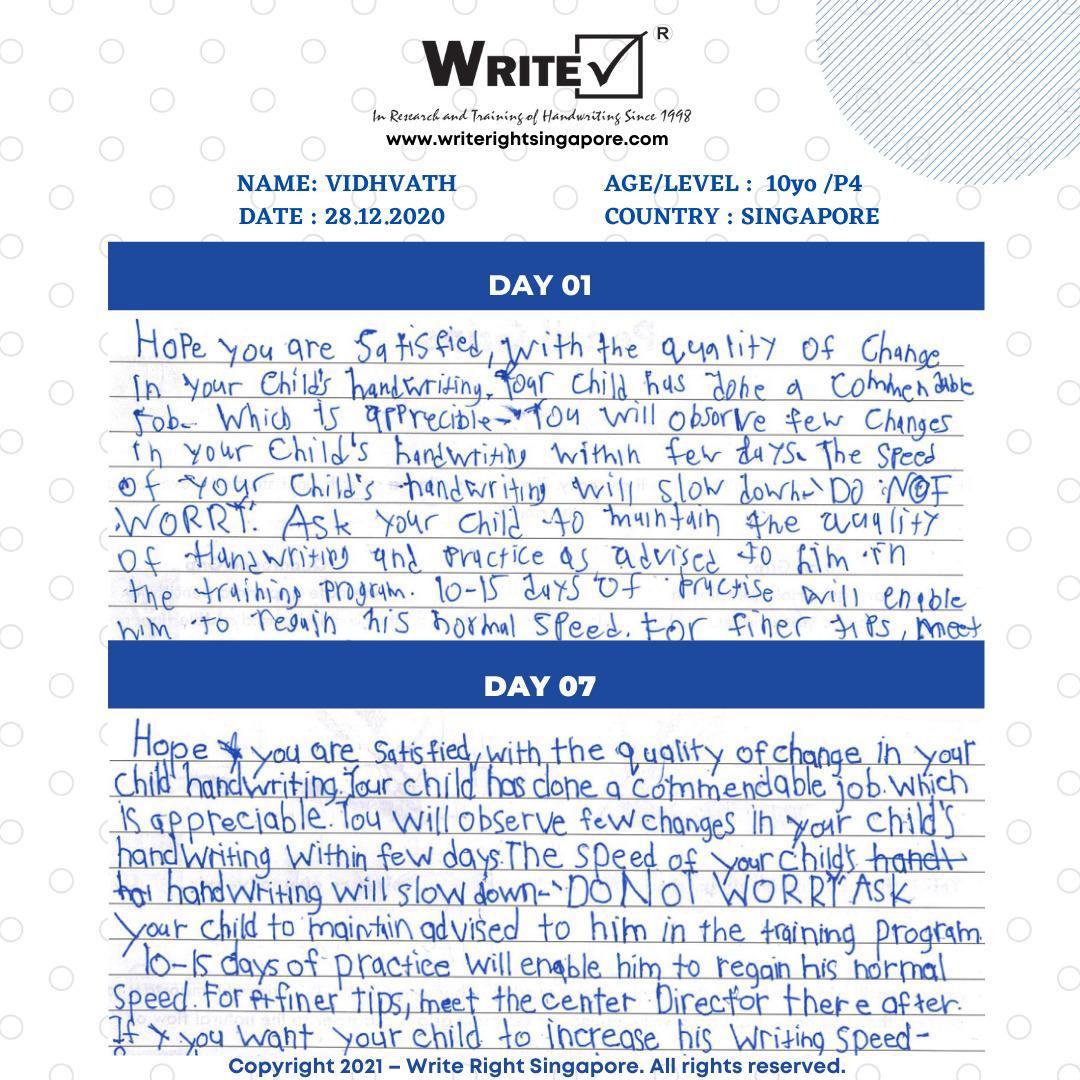 WRITE ®
In Research and Training of Handwriting Since 1998
www.writerightsingapore.com
NAME: VIDHVATH AGE/LEVEL : 10yo /P4
DATE : 28.12.2020 COUNTRY : SINGAPORE
DAY 01
Hope you are Satisfied, with the quality of Change
in your Child's handwriting. Your child has done a Commendable
Job. Which is apprecible - You will observe few Changes
in your Child's handwriting within few days. The Speed
of your Child's handwriting will slow down - "DO NOT
WORRY". Ask your child to maintain the quality
of Handwriting and Practice as advised to him in
the training program. 10-15 days of Practise will enable
him to regain his normal Speed. For finer tips, meet
DAY 07
Hope you are satisfied, with the quality of change in your
child handwriting. Your child has done a Commendable job. Which
is appreciable. You will observe few changes in your child's
handwriting within few days. The speed of your child's handt
handwriting will slow down - "DO NOT WORRY" ASK
your child to maintain advised to him in the training program.
10-15 days of practice will enable him to regain his normal
speed. For finer tips, meet the center Director there after.
If you want your child to increase his writing speed -
Copyright 2021 – Write Right Singapore. All rights reserved.